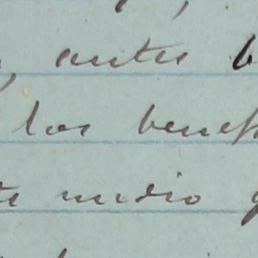 antes b
los benef
te medio g